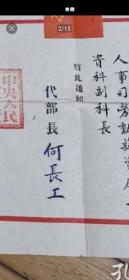 2/15
人事司勞動
資科副科長
特此通知
代部長 何長工
中央人民